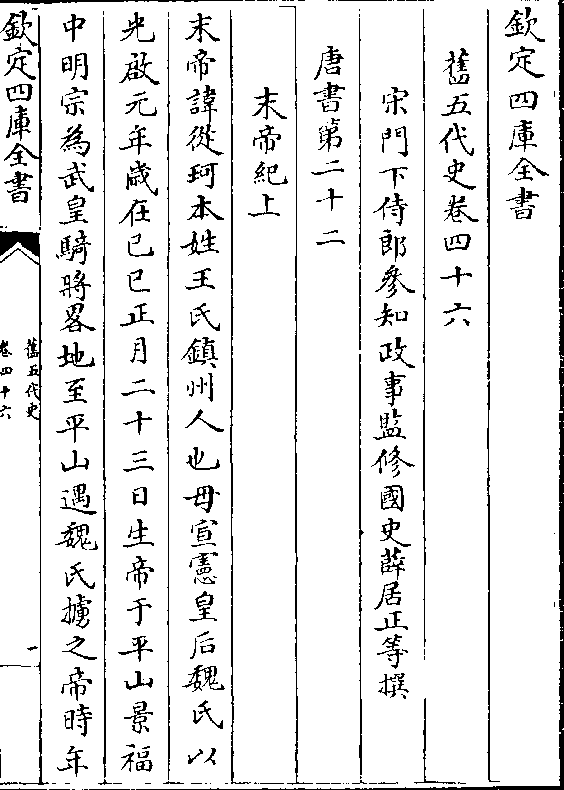 欽定四庫全書
舊五代史卷四十六
宋門下侍郎參知政事監修國史薛居正等撰
唐書第二十二
末帝紀上
末帝諱從珂本姓王氏鎮州人也母宣憲皇后魏氏以
光啟元年歲在己巳正月二十三日生帝于平山景福
中明宗為武皇騎將畧地至平山遇魏氏擄之帝時年
欽定四庫全書
舊五代史
卷四十六
一